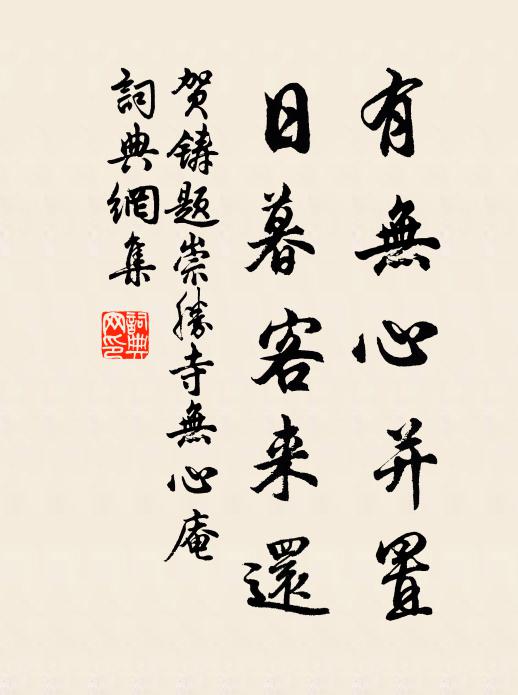 有無心并置
日暮客来還
贺铸题崇勝寺無心庵
詞典網集
詞典網印